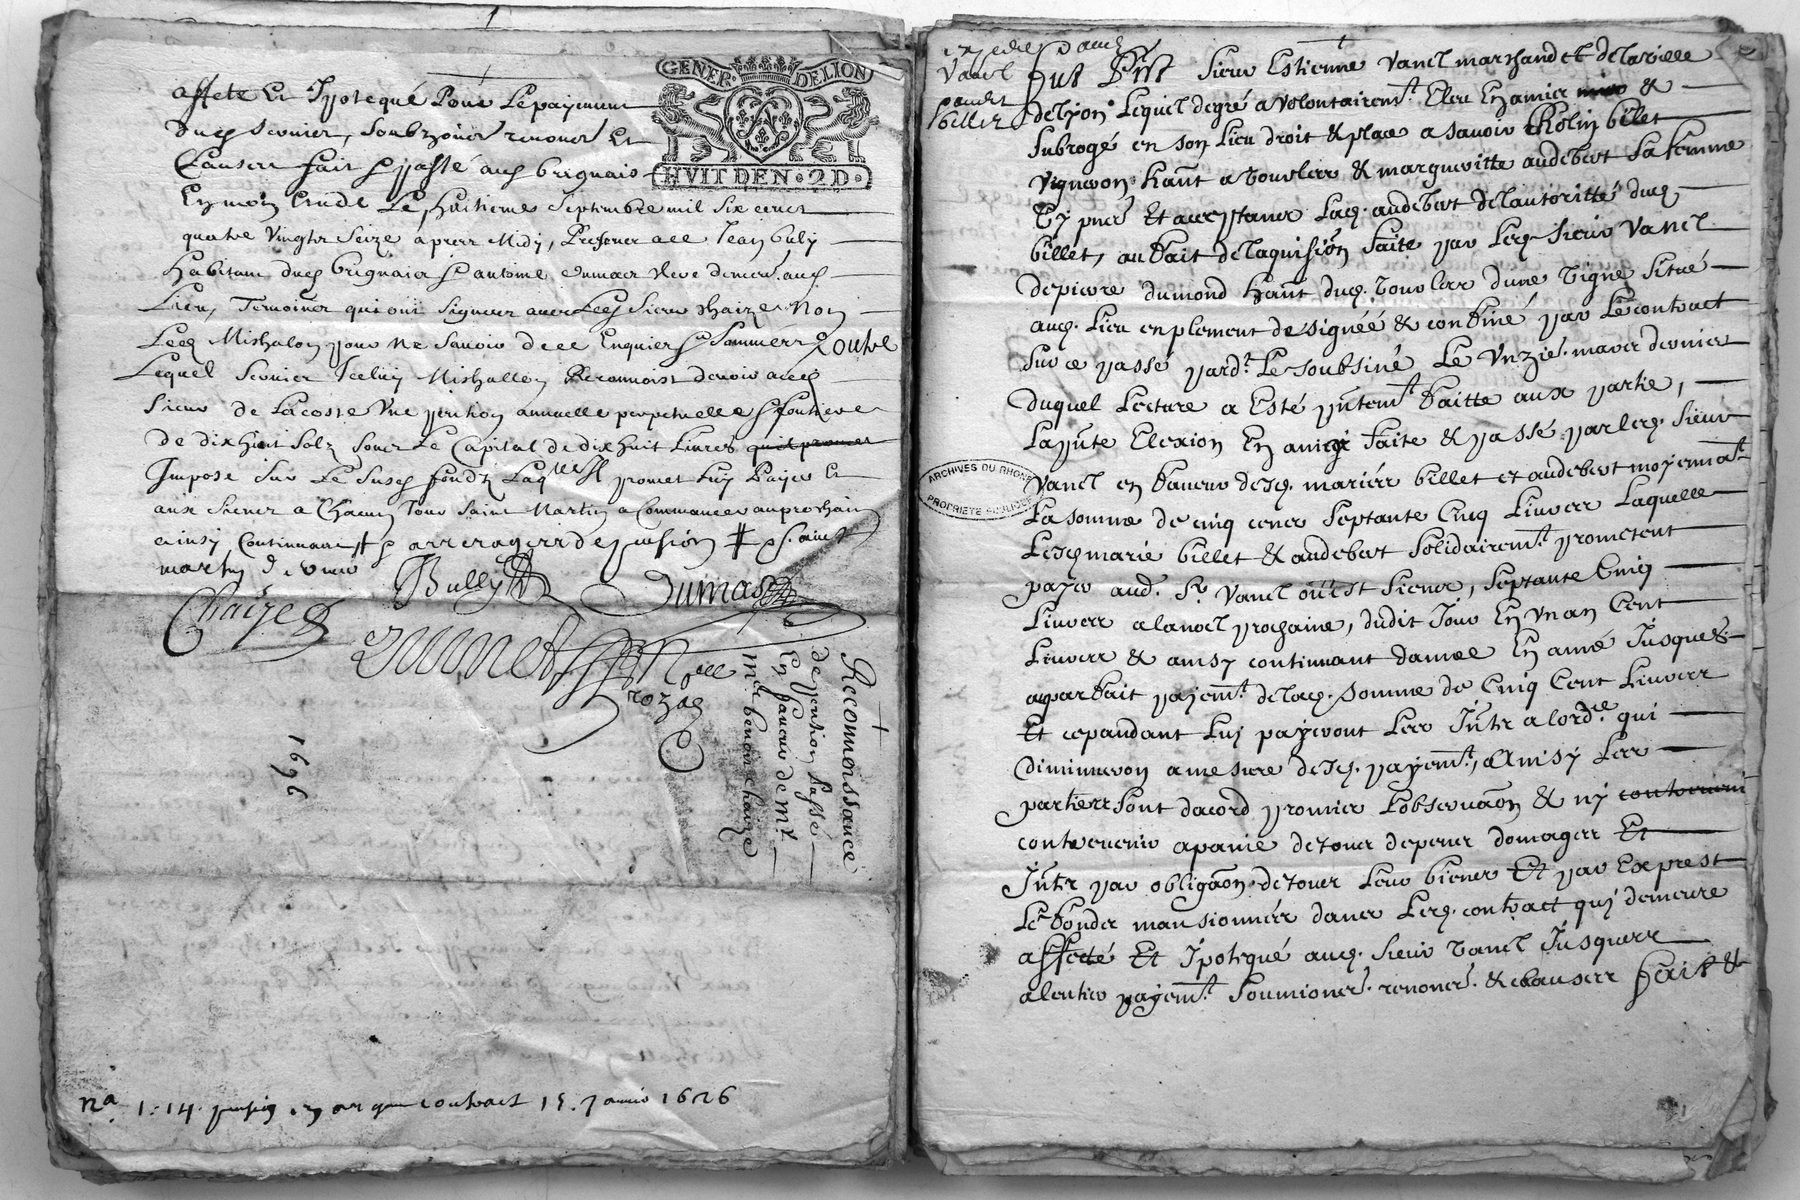 GENER. DE LION
HVIT DEN. 2 D.
affeté Et Ipotequé Pour Lepayement
Dud Dernier, Soubzmis renoncé Et
Clauses fait & passé aud brignais
Le huitieme Septembre mil six cens
quatre Vingtz Seize apres Midy, Presens Jean bully
habitans dud brignais & antoine dumas aud
Lieu, Temoins qui ont Signez avec Led Sieur Chaize Non
Led Mishalon pour Ne Savoir de ce Enquis & Sommé Loutre
Lequel Dernier Icelluy Mishallon Reconnoist devoir aud
Sieur de Lacoste Vne pention annuelle perpetuelle & fonciere
de dixhuit Solz Soubz Le Capital de dixhuit Livres
Imposé Sur Le Susd fondz promet Luy Payer Et
aux Siens a Chacun Jour Saint Martin a Commancer au prochain
ainsy Continuant & arrerages de pension # St
martin
Bully
Dumas
Chaize
Reconnoissance
de pention Passé
En faveur de Mr.
benoit chaize
1696
na 1: 14. contract 15. Janvier 1626
Vanel
billet
Fut Pnt Sieur Estienne Vanel marchand de la ville
de lyon Lequel de gré a volontairemt. Eleu En amier &
Subrogé en son Lieu droit & place a Savoir billet
Vigneron hant a Vourles & margueritte audebert Sa femme
Cy pnte Et acceptante Lad. audebert de lautoritté dud
billet, au fait de laquision faite par Led Sieur Vanel
de pierre dumond hant dud. Vourles dune Vigne Situé
aud. Lieu emplement designéé & confiné par Le contract
Sur ce passé pardt. Le Soubsiné Le Vnzie. mars dernier
duquel Lecture a Esté pntemt. faitte aux partie,
La pnte Elexion En amier faite & passé par led. Sieur
Vanel en faveur desd. mariés billet et audebert moyennat.
La Somme de cinq cens Septante Cinq Livres Laquelle
Lesd mariés billet & audebert Solidairemt. prometent
payer aud. Sr. Vanel ou Siens, Septante Cinq
Livres a la noel prochaine, dudit Jour En Vn an Cent
Livres & ainsy continuant dannée En anné Jusques
a parfait payemt. de lad. Somme de Cinq Cent Livres
Et cepandant Luy payeront Les Intz a lordre qui
diminueron a mesure desd. payemt. Ainsy Les
parties Sont dacord promis Lobservaon & ny
contrevenir a paine de tous depens domages Et
Intz par obligaon de tous Leur biens Et par Exprest
Le fonder mansionnéés dans Led. contract qui demeure
affecté Et Ipotequé aud. Sieur Vanel Jusques
a lentier payemt. Soumisions. renons. & clauses Fait &
ARCHIVES DU RHONE
PROPRIETE PUBLIQUE